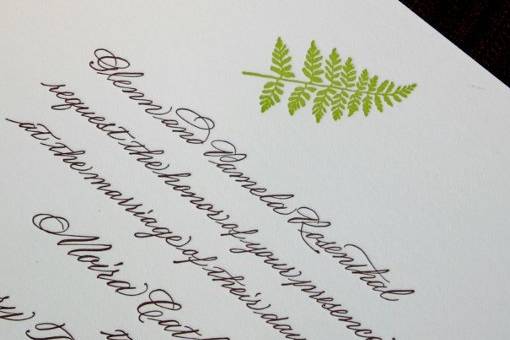 Glenn and Pamela Rosenthal
request the honor of your presence
at the marriage of their dau
Moira Cath